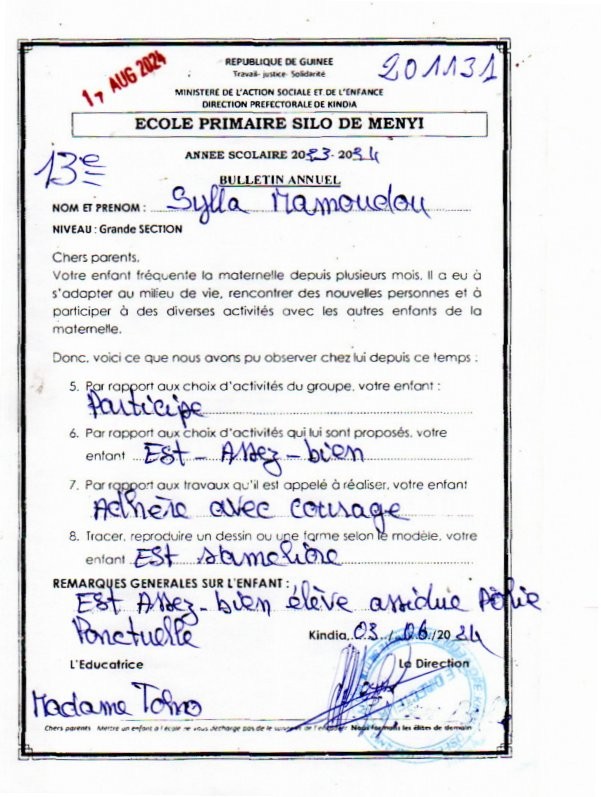 17 AUG 2024
REPUBLIQUE DE GUINEE
Travail- justice- Solidarité
201131
MINISTERE DE L'ACTION SOCIALE ET DE L'ENFANCE
DIRECTION PREFECTORALE DE KINDIA
ECOLE PRIMAIRE SILO DE MENYI
ANNEE SCOLAIRE 2023-2024
13e
BULLETIN ANNUEL
NOM ET PRENOM : Sylla Mamoudou
NIVEAU : Grande SECTION
Chers parents.
Votre enfant fréquente la maternelle depuis plusieurs mois. Il a eu à
s'adapter au milieu de vie, rencontrer des nouvelles personnes et à
participer à des diverses activités avec les autres enfants de la
maternelle.
Donc, voici ce que nous avons pu observer chez lui depuis ce temps :
5. Par rapport aux choix d'activités du groupe, votre enfant :
Participe
6. Par rapport aux choix d'activités qui lui sont proposés, votre
enfant Est - Assez - bien
7. Par rapport aux travaux qu'il est appelé à réaliser, votre enfant
Adhère avec courage
8. Tracer, reproduire un dessin ou une forme selon le modèle, votre
enfant Est
REMARQUES GENERALES SUR L'ENFANT :
Est Assez - bien élève assidue Polie
Ponctuelle
Kindia, 03 / 06 /2024
L'Educatrice
La Direction
Madame Tolno
Chers parents Mettre un enfant à l'école ne vous décharge pas de le de l' Nous formons les élites de demain